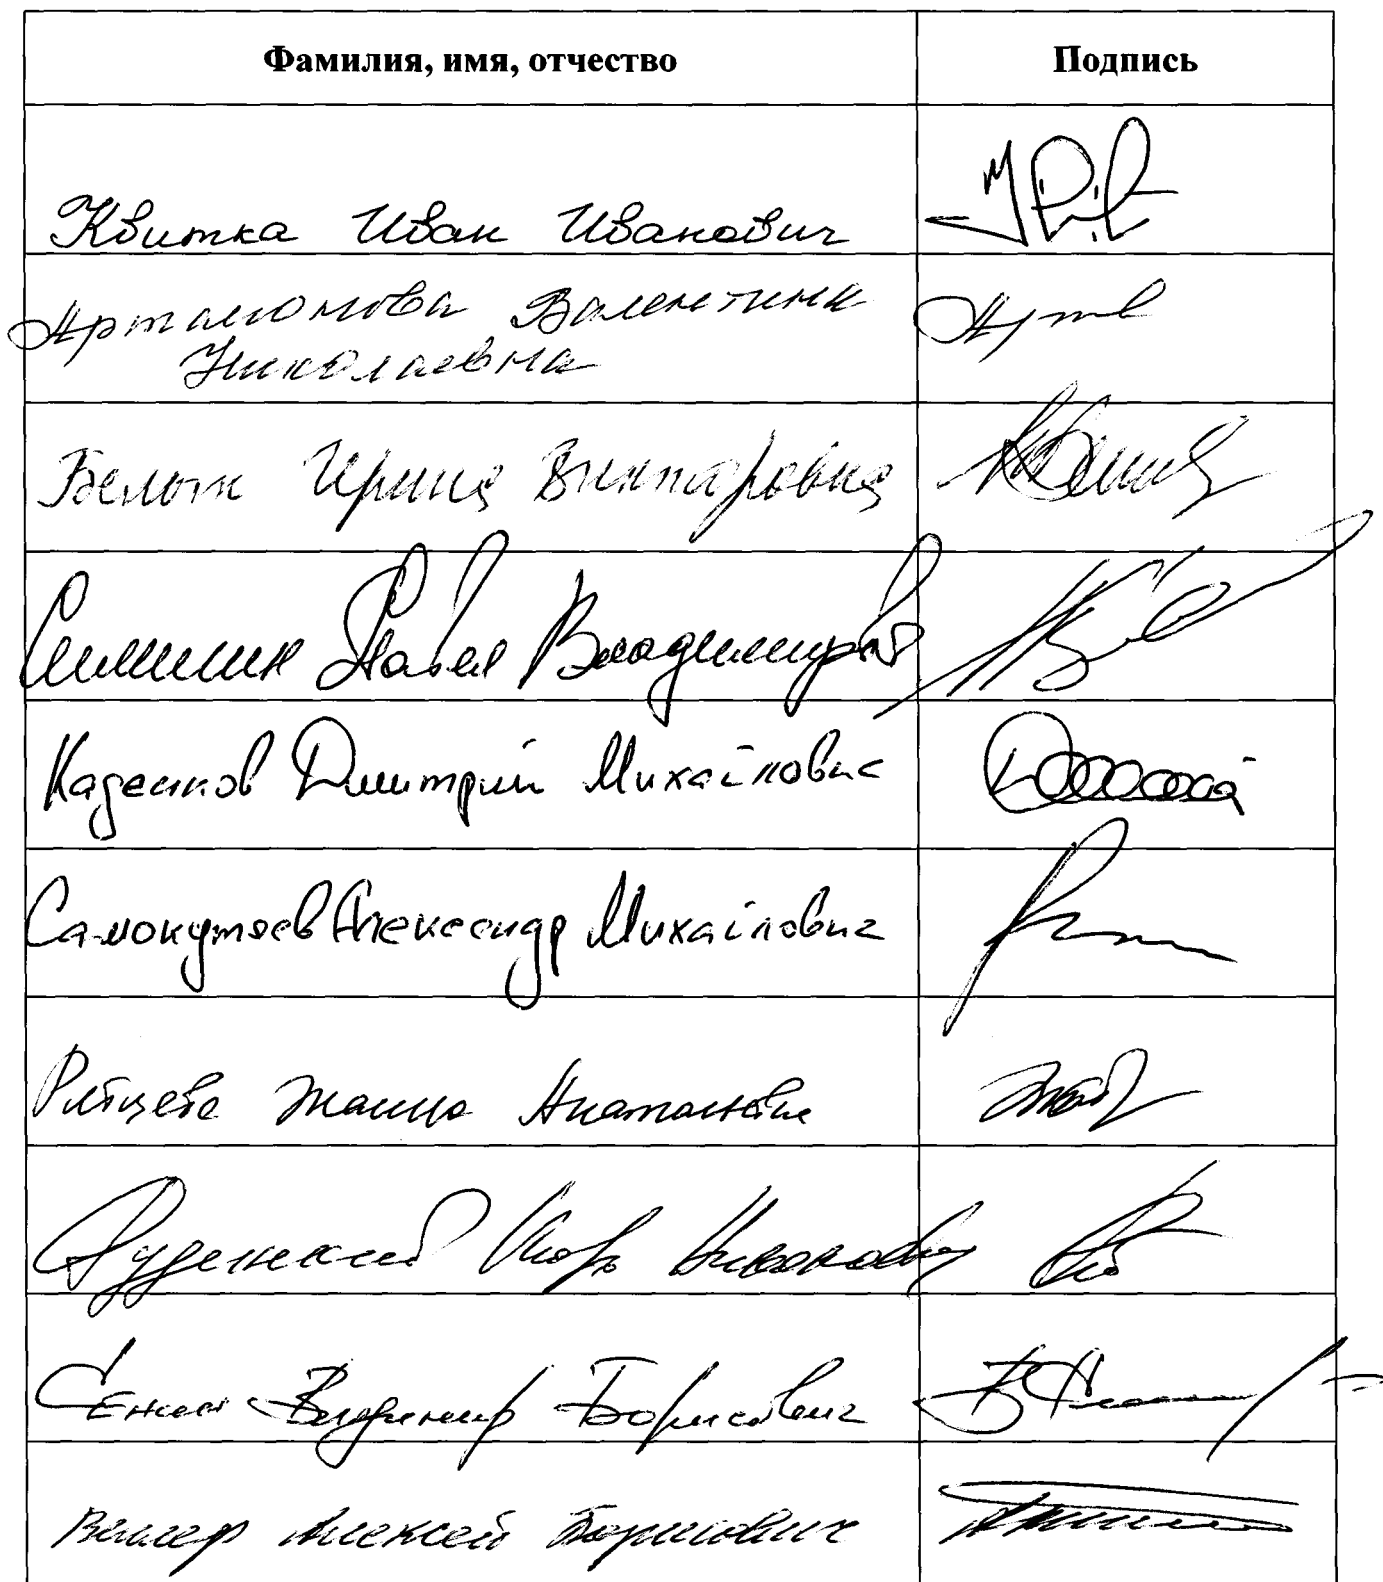 Фамилия, имя, отчество Подпись
Квитка Иван Иванович
Артамонова Валентина
Николаевна
Ирина Викторовна
Симигин Павел Владимиров
Каденков Дмитрий Михайлович
Самокутяев Александр Михайлович
Рябцева Жанна Анатольевна
Руденский Игорь Николаевич
Владимир Борисович
Вельмер Алексей Борисович